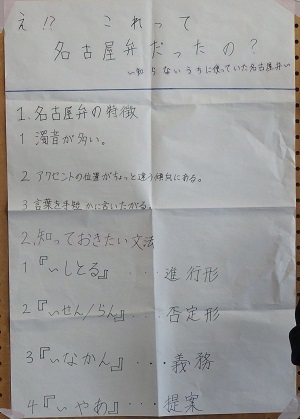 え!? これって
名古屋弁だったの?
〜知らないうちに使っていた名古屋弁〜
1.名古屋弁の特徴
1 濁音が多い。
2 アクセントの位置がちょっと違う傾向にある。
3 言葉を手短かに言いたがる。
2.知っておきたい文法
1『〜しとる』・・・進行形
2『〜せん/らん』・・・否定形
3『〜なかん』・・・義務
4『〜やあ』・・・提案